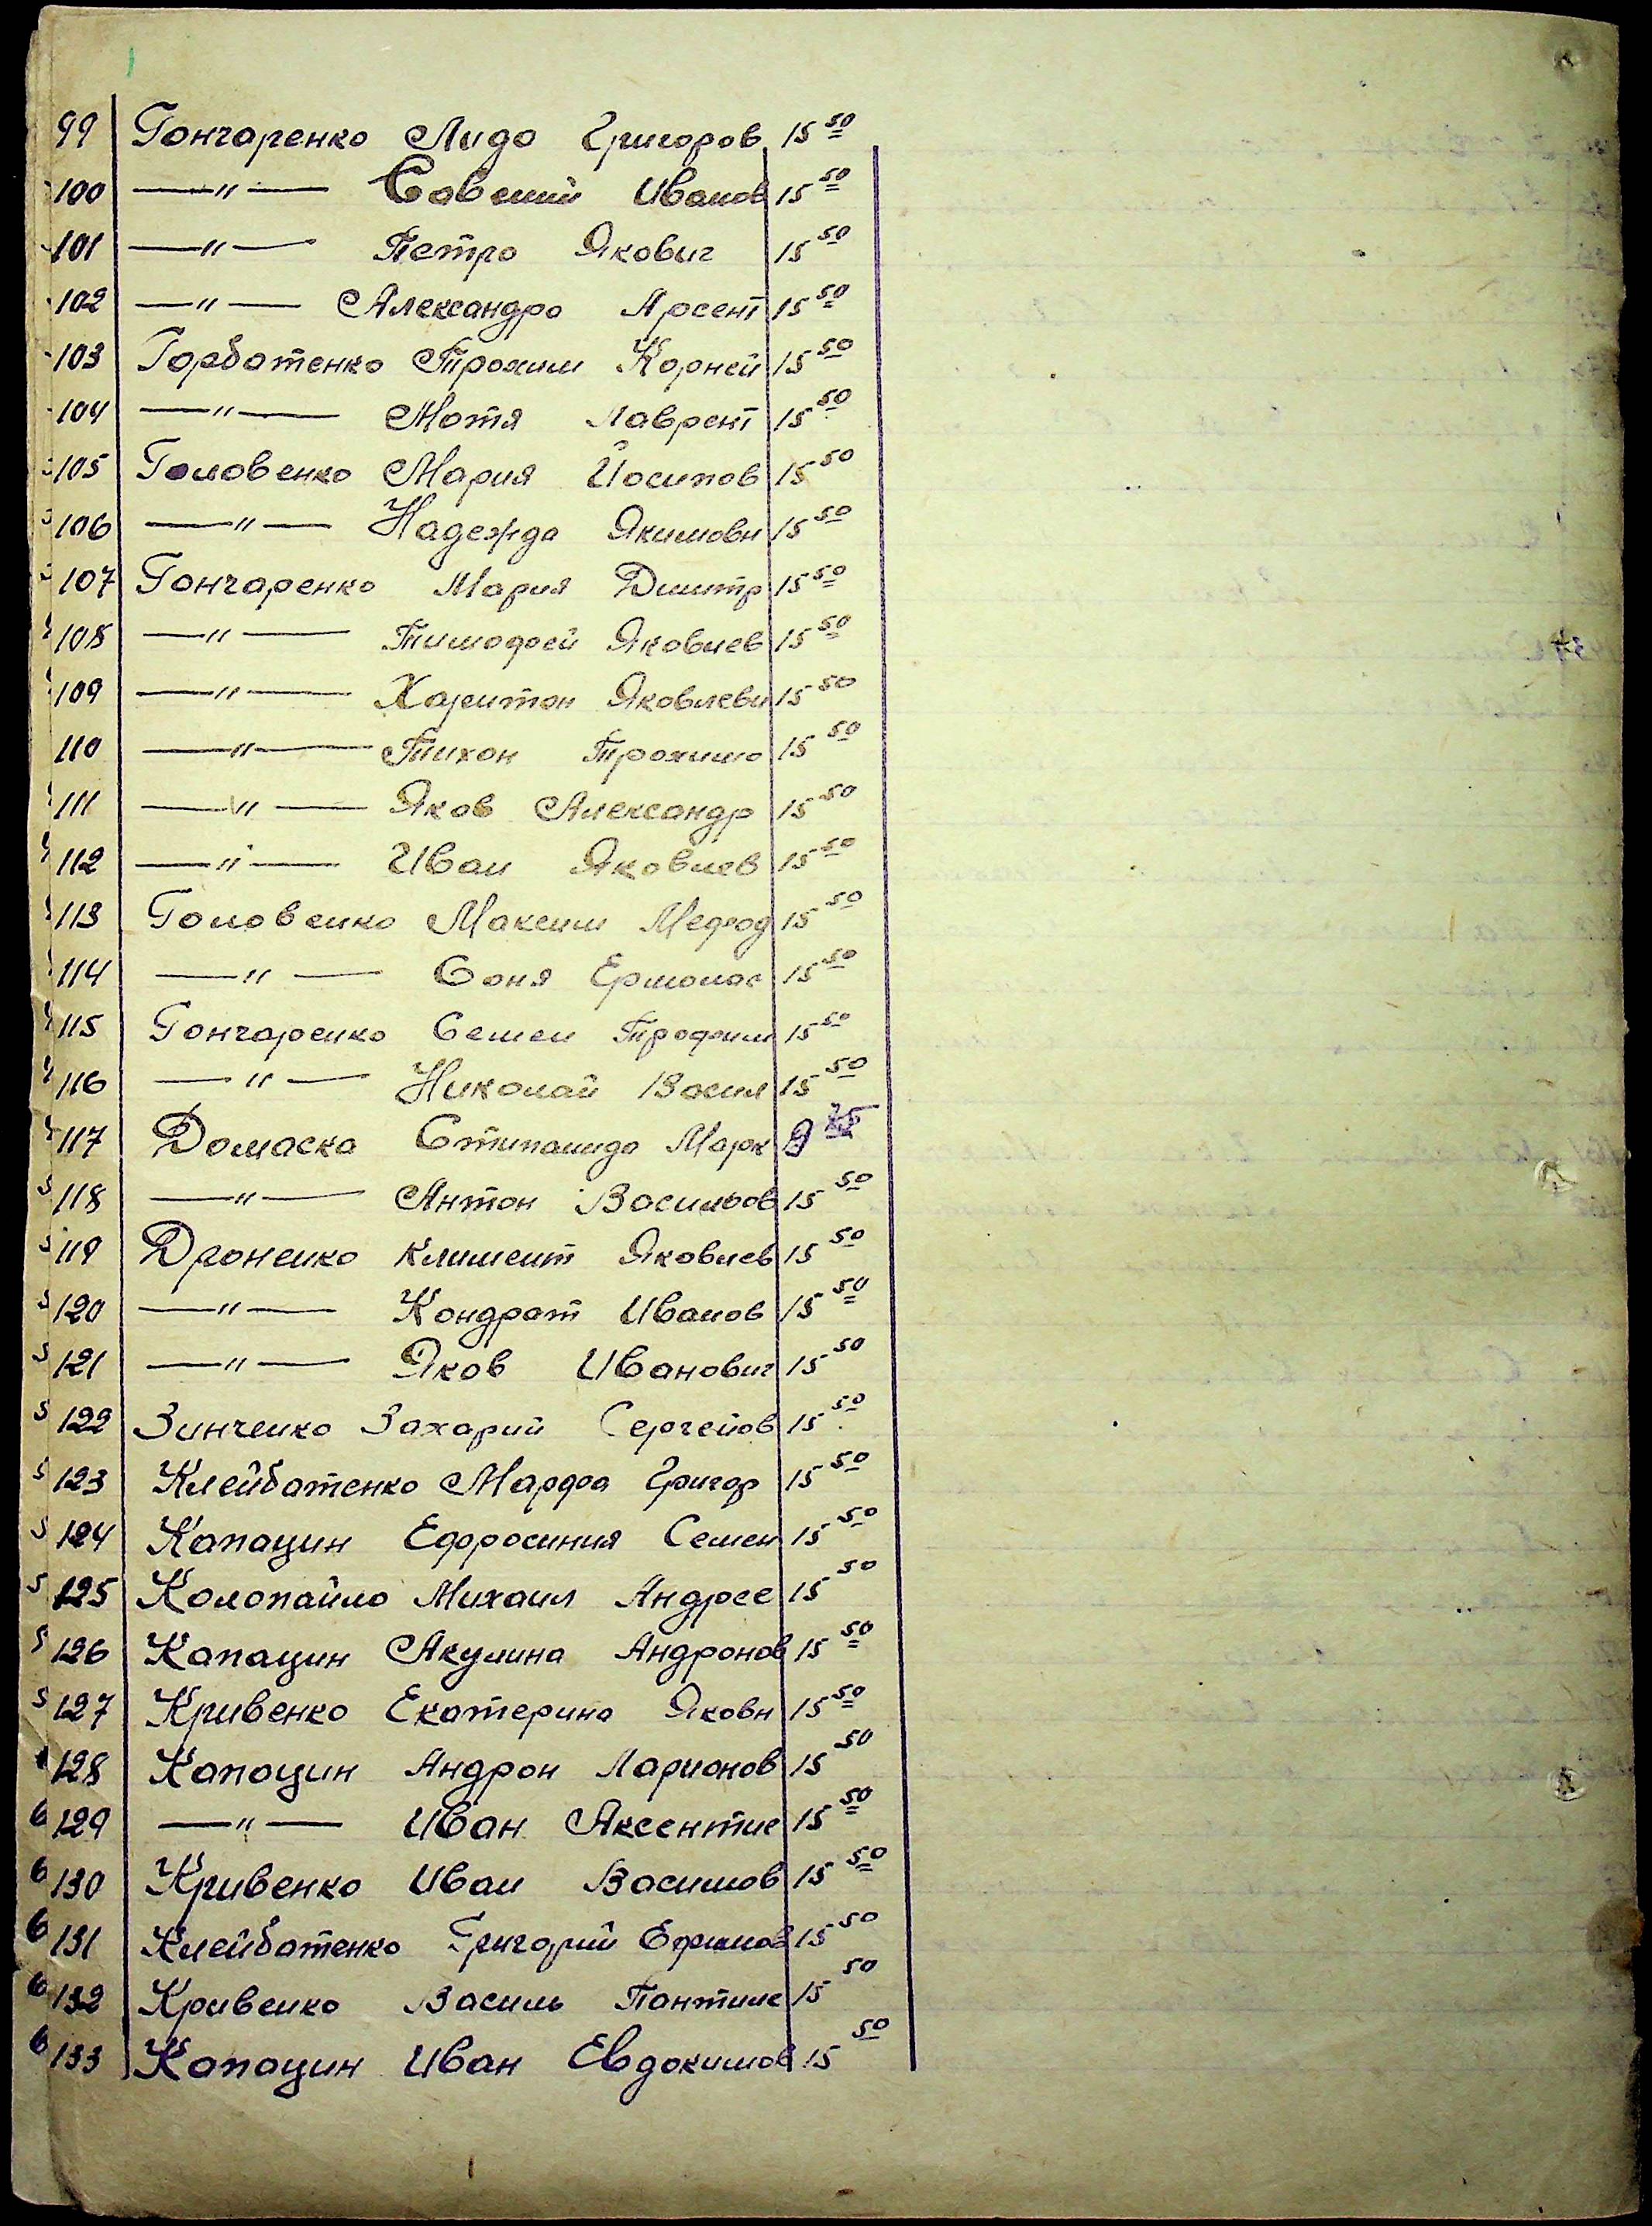 99 Гончаренко Лида Григоров 15 50
100 —"— Савелий Иванов 15 50
101 —"— Петро Якович 15 50
102 —"— Александра Арсент 15 50
103 Горбатенко Трохим Корней 15 50
104 —"— Мотя Лаврент 15 50
105 Головенко Мария Йосипов 15 50
106 —"— Надежда Якимовн 15 50
107 Гончаренко Мария Дмитр 15 50
108 —"— Тимофей Яковлев 15 50
109 —"— Харитон Яковлеви 15 50
110 —"— Тихон Трохимо 15 50
111 —"— Яков Александр 15 50
112 —"— Иван Яковлев 15 50
113 Головенко Максим Мефод 15 50
114 —"— Соня Ермолае 15 50
115 Гончаренко Семен Трофим 15 50
116 —"— Николай Васил 15 50
117 Домаска Степанида Марк
118 —"— Антон Васильов 15 50
119 Дроненко Климент Яковлев 15 50
120 —"— Кондрат Иванов 15 50
121 —"— Яков Иванович 15 50
122 Зинченко Захарий Сергейов 15 50
123 Клейбатенко Марфа Григор 15 50
124 Капацин Ефросиния Семен 15 50
125 Колопайло Михаил Андрее 15 50
126 Капацин Акулина Андронов 15 50
127 Кривенко Екатерина Яковн 15 50
128 Капацин Андрон Ларионов 15 50
129 —"— Иван Аксентие 15 50
130 Кривенко Иван Васильов 15 50
131 Клейбатенко Григорий Ефимов 15 50
132 Кривенко Василь Пантиле 15 50
133 Капацин Иван Евдокимов 15 50